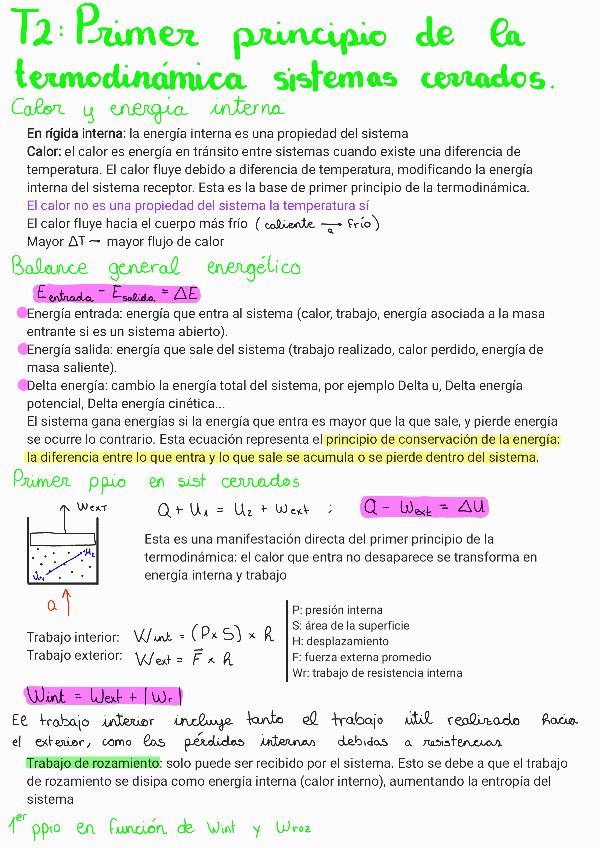 T2: Primer principio de la
termodinámica sistemas cerrados.
Calor y energía interna
En rígida interna: la energía interna es una propiedad del sistema
Calor: el calor es energía en tránsito entre sistemas cuando existe una diferencia de
temperatura. El calor fluye debido a diferencia de temperatura, modificando la energía
interna del sistema receptor. Esta es la base de primer principio de la termodinámica.
El calor no es una propiedad del sistema la temperatura sí
El calor fluye hacia el cuerpo más frío (caliente →Q frío)
Mayor ΔT → mayor flujo de calor
Balance general energético
E entrada - E salida = ΔE
Energía entrada: energía que entra al sistema (calor, trabajo, energía asociada a la masa
entrante si es un sistema abierto).
Energía salida: energía que sale del sistema (trabajo realizado, calor perdido, energía de
masa saliente).
Delta energía: cambio la energía total del sistema, por ejemplo Delta u, Delta energía
potencial, Delta energía cinética...
El sistema gana energías si la energía que entra es mayor que la que sale, y pierde energía
se ocurre lo contrario. Esta ecuación representa el principio de conservación de la energía:
la diferencia entre lo que entra y lo que sale se acumula o se pierde dentro del sistema.
Primer ppio en sist cerrados
WEXT
Q + U1 = U2 + Wext ; Q - Wext = ΔU
U2
U1
Q
Esta es una manifestación directa del primer principio de la
termodinámica: el calor que entra no desaparece se transforma en
energía interna y trabajo
Trabajo interior: Wint = (P x S) x h
Trabajo exterior: Wext = F⃗ x h
P: presión interna
S: área de la superficie
H: desplazamiento
F: fuerza externa promedio
Wr: trabajo de resistencia interna
Wint = Wext + |Wr|
El trabajo interior incluye tanto el trabajo útil realizado hacia
el exterior, como las pérdidas internas debidas a resistencias
Trabajo de rozamiento: solo puede ser recibido por el sistema. Esto se debe a que el trabajo
de rozamiento se disipa como energía interna (calor interno), aumentando la entropía del
sistema
1er ppio en función de Wint y Wroz